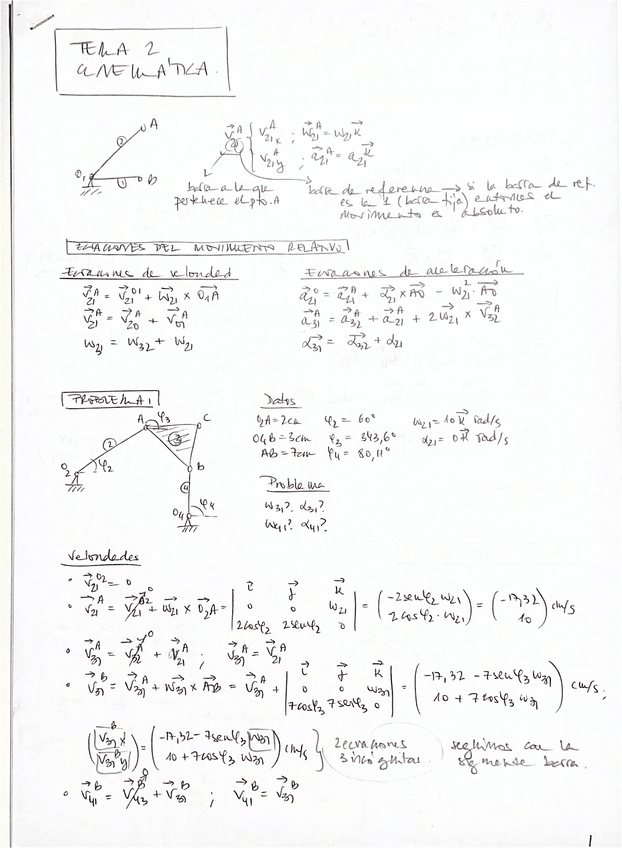 TEMA 2
CINEMÁTICA.
A
②
O₁
①
B
v⃗₂₁ᴬ { v₂₁ₓᴬ ; w⃗₂₁ᴬ = w₂₁ k⃗
v₂₁yᴬ ; a⃗₂₁ᴬ = a₂₁ k⃗
barra a la que pertenece el pto. A
barra de referencia → si la barra de ref. es la 1 (barra fija) entonces el movimiento es absoluto.
ECUACIONES DEL MOVIMIENTO RELATIVO
Ecuaciones de velocidad
v⃗₂₁ᴬ = v⃗₂₁ᴼ¹ + w⃗₂₁ × O₁A
v⃗₂₁ᴬ = v⃗₂₀ᴬ + v⃗₀₁ᴬ
w₃₁ = w₃₂ + w₂₁
Ecuaciones de aceleración
a⃗₂₁ᴼ = a⃗₂₁ᴬ + α⃗₂₁ × AO - w₂₁² · AO
a⃗₃₁ᴬ = a⃗₃₂ᴬ + a⃗₂₁ᴬ + 2w⃗₂₁ × v⃗₃₂ᴬ
α⃗₃₁ = α⃗₃₂ + α₂₁
PROBLEMA 1
A
φ₃
C
②
③
O₂
φ₂
B
④
O₄
φ₄
Datos
O₂A = 2cm φ₂ = 60º w₂₁ = 10 k⃗ rad/s
O₄B = 3cm φ₃ = 343,6º α₂₁ = 0 k⃗ rad/s
AB = 7cm φ₄ = 80,11º
Problema
w₃₁? α₃₁?
w₄₁? α₄₁?
Velocidades
• v⃗₂₁ᴼ² = 0
• v⃗₂₁ᴬ = v⃗₂₁ᴼ² + w⃗₂₁ × O₂A = | i⃗ j⃗ k⃗ |
| 0 0 w₂₁ | = ( -2senφ₂ w₂₁ ) = ( -17,32 ) cm/s
| 2cosφ₂ 2senφ₂ 0 | ( 2cosφ₂ · w₂₁ ) ( 10 )
• v⃗₃₁ᴬ = v⃗₃₂ᴬ + v⃗₂₁ᴬ ; v⃗₃₁ᴬ = v⃗₂₁ᴬ
• v⃗₃₁ᴮ = v⃗₃₁ᴬ + w⃗₃₁ × AB = v⃗₃₁ᴬ + | i⃗ j⃗ k⃗ |
| 0 0 w₃₁ | = ( -17,32 - 7senφ₃ w₃₁ ) cm/s;
| 7cosφ₃ 7senφ₃ 0 | ( 10 + 7cosφ₃ w₃₁ )
( v₃₁ᴮ x ) = ( -17,32 - 7senφ₃ w₃₁ ) cm/s } 2 ecuaciones seguimos con la
( v₃₁ᴮ y ) ( 10 + 7cosφ₃ w₃₁ ) 3 incógnitas. siguiente barra.
• v⃗₄₁ᴮ = v⃗₄₃ᴮ + v⃗₃₁ᴮ ; v⃗₄₁ᴮ = v⃗₃₁ᴮ
1